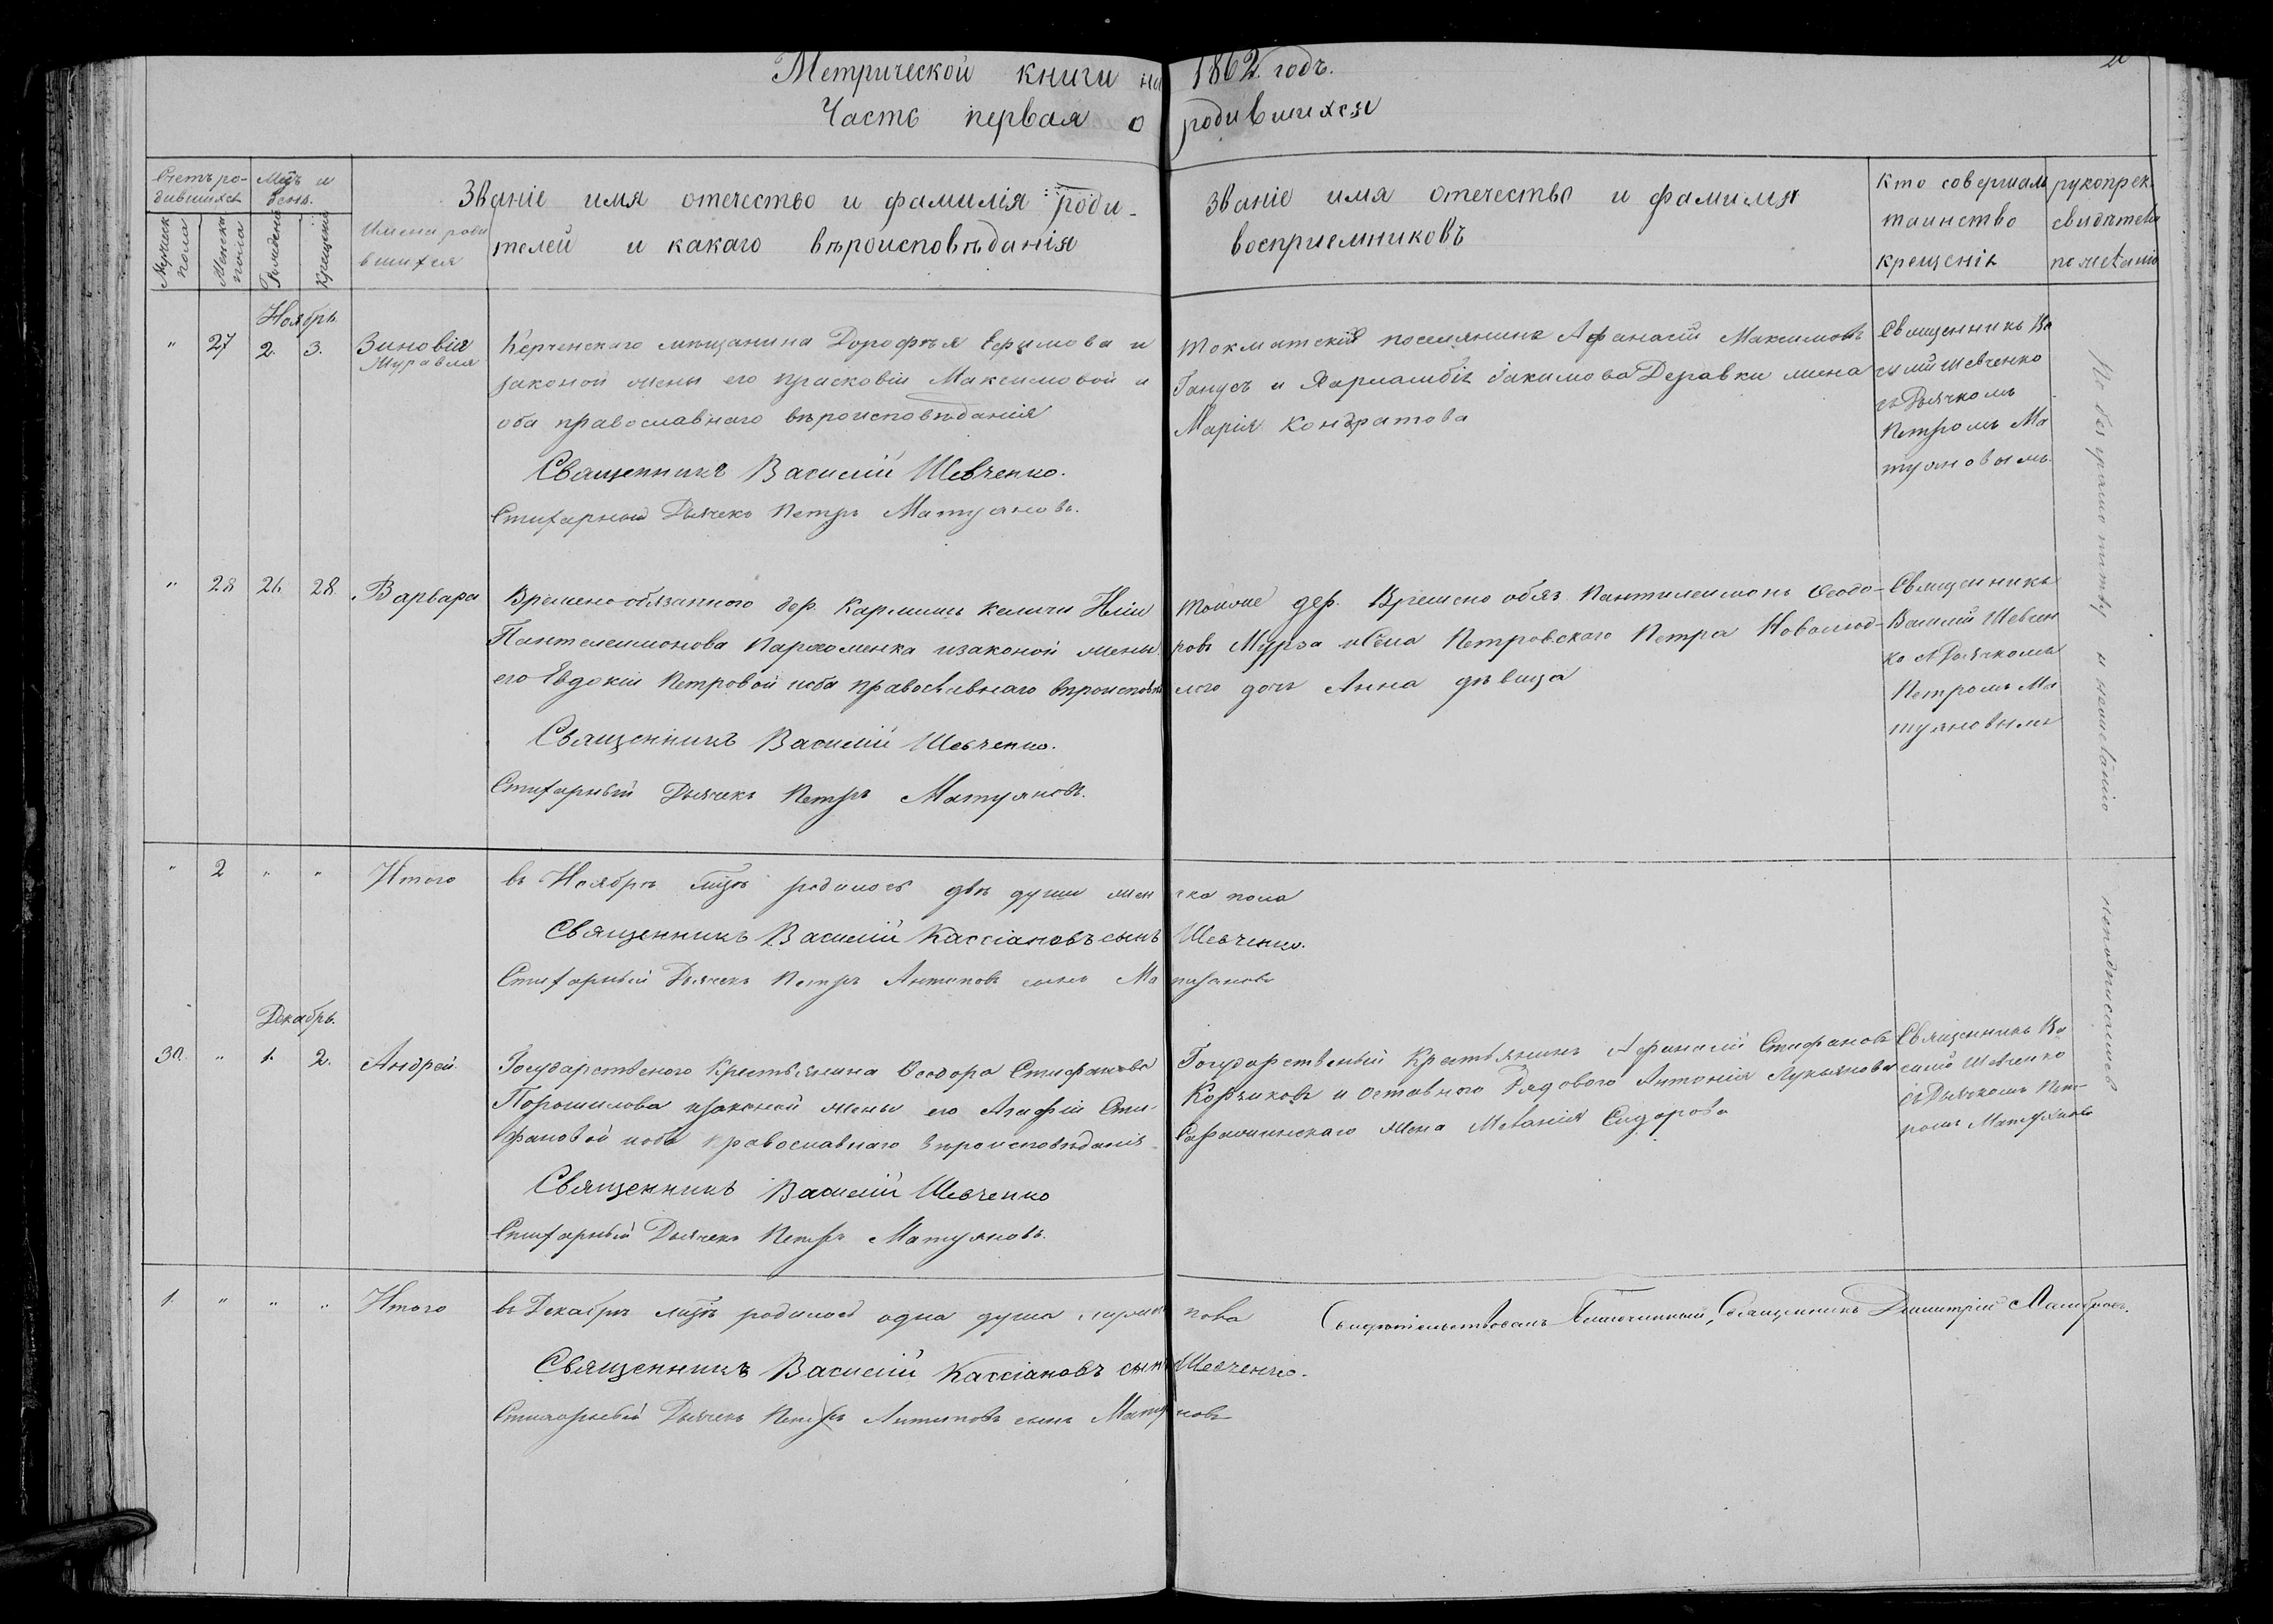 Метрической книги на 1862. годъ.
Часть первая о родившихся
Счетъ ро-
дившихся
Мужеск пола
Женска пола
Мцъ и
день.
Рожденія
Крещенія
Имена роди
вшихся
Званіе имя отечество и фамилія роди-
телей и какаго вѣроисповѣданія
Званіе имя отечество и фамилія
восприемниковъ
Кто совершал
таинство
крещенія
рукоприк.
свидѣтеле
по желанію
Ноябрь.
" 27 2. 3. Зиновія
Журавля
Керченскаго мѣщанина Дорофѣя Ефимова и
законой жены его Прасковіи Максимовой и
оба православнаго вѣроисповѣданія
Священникъ Василій Шевченко.
Стихарный Дьячекъ Петръ Матуяновъ.
Токматскій поселянинъ Афанасій Максимовъ
Ганусъ и Якимова Деравки жена
Марія Кондратова
Священникъ Ва
силій Шевченко
съ Дьячкомъ
Петромъ Ма
туяновымъ.
" 28 26 28. Варвара
Временообязанного дер. Кармишъ келичи Иліи
Пантелеимонова Пархоменка изаконой жены
его Евдокіи Петровой иоба православнаго вѣроисповѣ
Священникъ Василій Шевченко.
Стихарный Дьячекъ Петръ Матуяновъ.
тойже дер. Времено обяз. Пантилеимонъ Феодо-
ровъ Мурза Петровскаго Петра Новолюд-
скго дочь Анна дѣвица
Священникъ
Василій Шевчен
ко съ Дьячкомъ
Петромъ Ма
туяновымъ
По безграмотству и нежеланію
неподписались
" 2 " " Итого
въ Ноябрѣ мцѣ родилось двѣ души жен ска пола
Священникъ Василій Кассіановъ сынъ Шевченко.
Стихарный Дьячекъ Петръ Антиповъ сынъ Ма туяновъ
Декабрь.
30. " 1. 2. Андрей
Государственого Крестьянина Феодора Стифанова
Порошилова изаконой жены его Агафіи Сти-
фановой иоба православнаго вѣроисповѣданія
Священникъ Василій Шевченко
Стихарный Дьячекъ Петръ Матуяновъ.
Государственый Крестьянинъ Афанасій Стифановъ
Корчиковъ и оставного Рядового Антонія Лукьянова
жена Меланія Сидорова
Священникъ Ва
силій Шевченко
съ Дьячкомъ Пет-
ромъ Матуяновъ
1. " " " Итого
въ Декабрѣ мцѣ родилось одна душа пола
Священникъ Василій Кассіановъ сынъ Шевченко.
Стихарный Дьячекъ Петръ Антиповъ сынъ Матуяновъ
Свидѣтельствовалъ Благочинный, Священникъ Димитрій